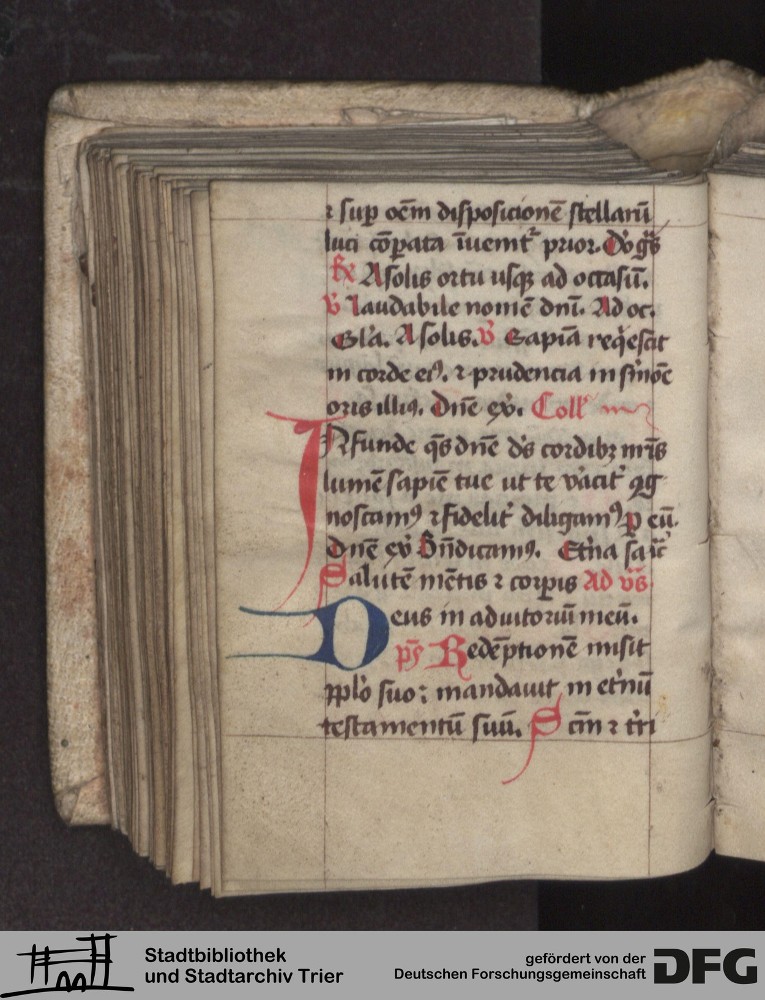 ⁊ sup oēm disposicionē stellarū
luci cōpata īuenit᷑ prior. Dō gr̄s
R̷ A solis ortu usq̷ ad occasū.
v̄ laudabile nomē dnī. Ad oc.
Gl'a. A solis. v̄ Sapia̅ reqͥescit
in corde eiꝰ. ⁊ prudencia in sm̄oē
oris illiꝰ. Dn̄e ex̄. Coll'
INfunde qs̄ dn̄e ds̄ cordibꝫ nr̄is
lumē sapiē tue ut te vacit᷑ ꝯg
noscamꝰ ⁊ fidelit᷑ diligamꝰ p eū.
Dn̄e ex̄ Bn̄dicamꝰ. Et'na
Salutē mētis ⁊ corpis Ad vs̄
Deus in adiutoriū meū.
ps̄ Redēptionē misit
pplo suo: mandauit in et'nū
testamentū suū. Scm̄ ⁊ t'ri
Stadtbibliothek
und Stadtarchiv Trier
gefördert von der
Deutschen Forschungsgemeinschaft
DFG